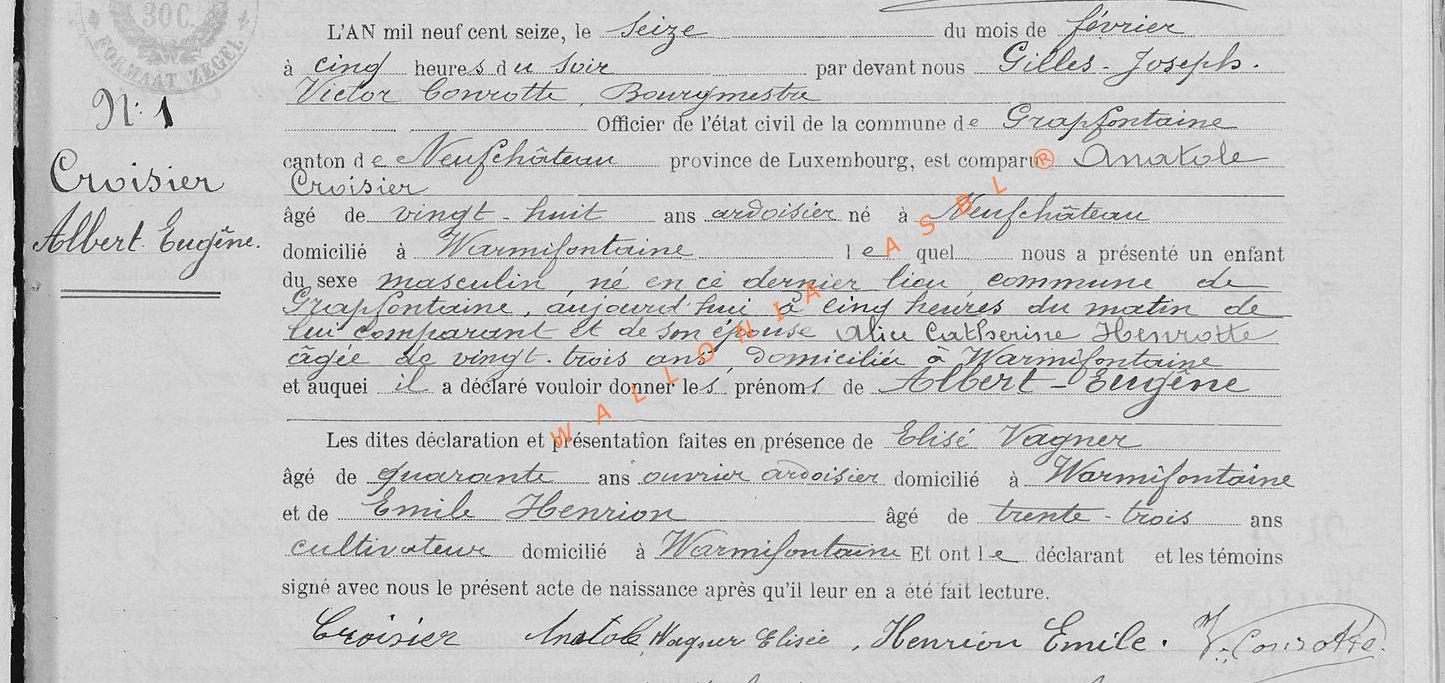 30C.
FORMAAT ZEGEL
L'AN mil neuf cent seize, le seize du mois de février
à cinq heures du soir par devant nous Gilles-Joseph-
Victor Conrotte, Bourgmestre
N: 1
Officier de l'état civil de la commune de Grapfontaine
canton de Neufchâteau province de Luxembourg, est comparu Anatole
Croisier
Croisier
âgé de vingt-huit ans ardoisier né à Neufchâteau
Albert-Eugêne.
domicilié à Warmifontaine lequel nous a présenté un enfant
du sexe masculin, né en ce dernier lieu, commune de
Grapfontaine, aujourd'hui à cinq heures du matin de
lui comparant et de son épouse Alice Catherine Henrotte
âgée de vingt-trois ans, domiciliée à Warmifontaine
et auquel il a déclaré vouloir donner les prénoms de Albert-Eugêne
Les dites déclaration et présentation faites en présence de Elisé Vagner
âgé de quarante ans ouvrier ardoisier domicilié à Warmifontaine
et de Emile Henrion âgé de trente-trois ans
cultivateur domicilié à Warmifontaine Et ont le déclarant et les témoins
signé avec nous le présent acte de naissance après qu'il leur en a été fait lecture.
Croisier Anatole, Wagner Elisée, Henrion Emile. V. Conrotte.
WALLONIA ASBL ®